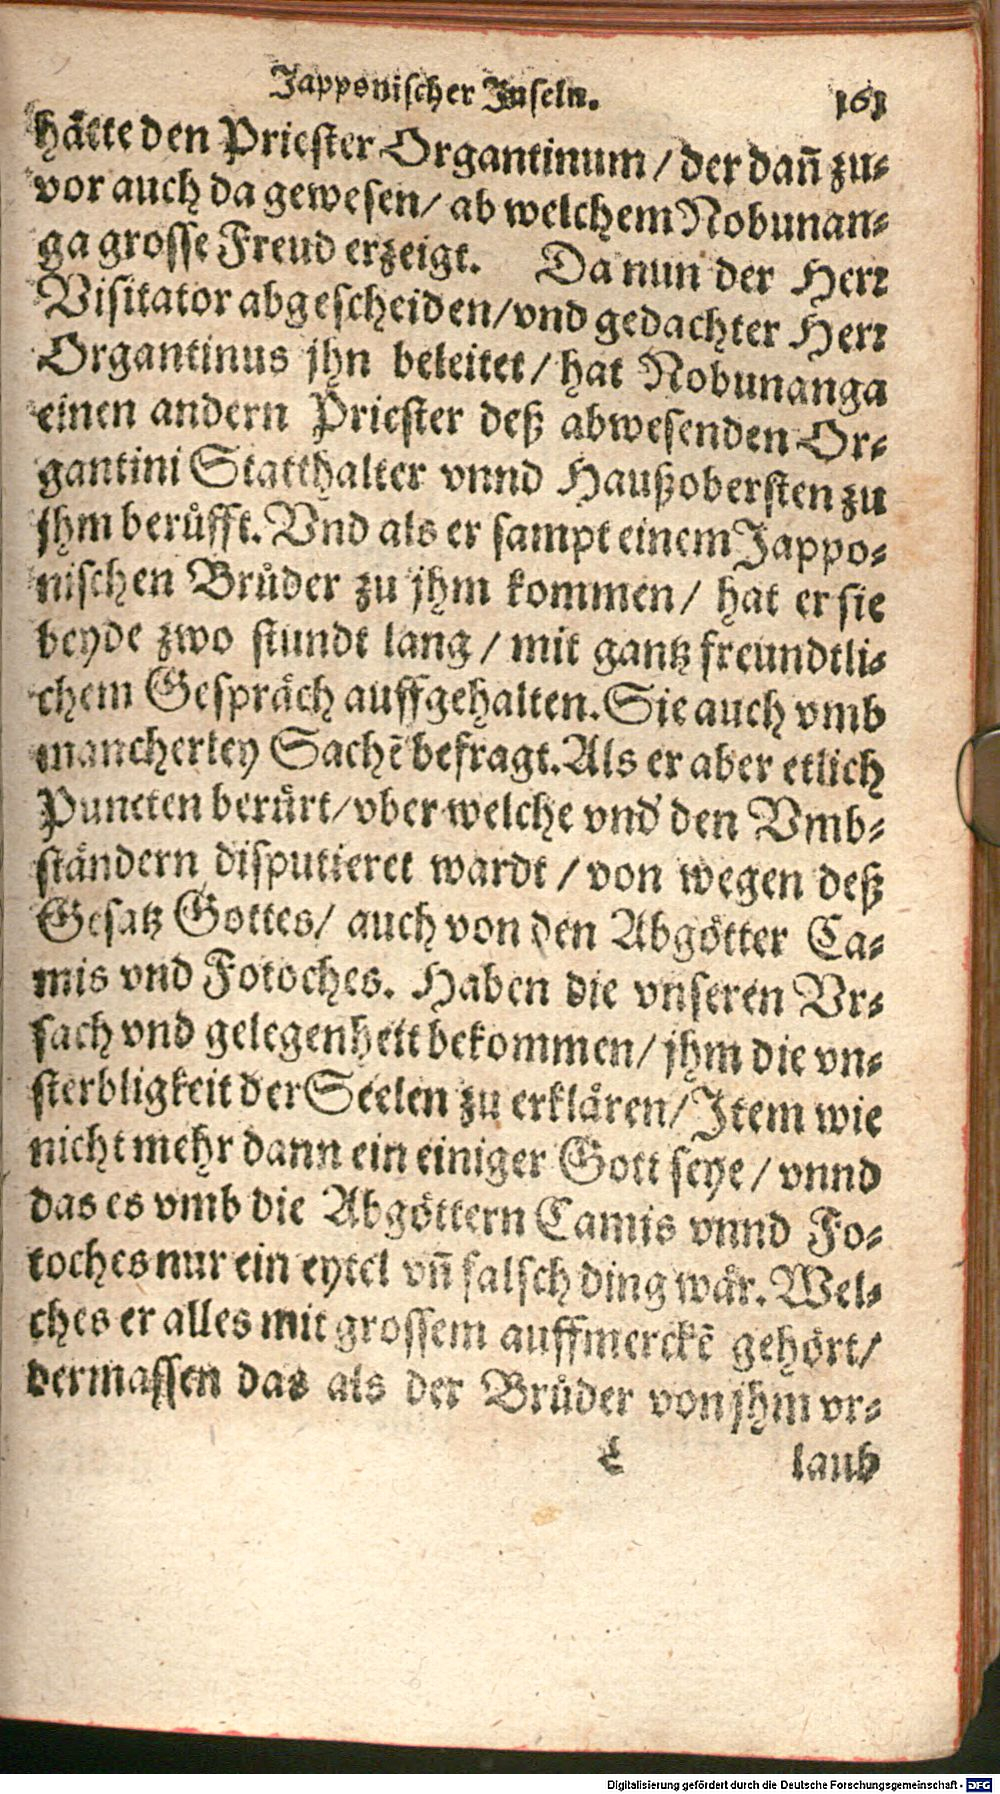 Japponischer Inseln. 161
hätte den Priester Organtinum / der dañ zu-
vor auch da gewesen / ab welchem Nobunan-
ga grosse Freud erzeigt. Da nun der Herr
Visitator abgescheiden / vnd gedachter Herr
Organtinus jhn beleitet / hat Nobunanga
einen andern Priester deß abwesenden Or-
gantini Statthalter vnnd Haußobersten zu
jhm berůfft. Vnd als er sampt einem Jappo-
nischen Brůder zu jhm kommen / hat er sie
beyde zwo stundt lang / mit gantz freundtli-
chem Gespräch auffgehalten. Sie auch vmb
mancherley Sachē befragt. Als er aber etlich
Puncten berůrt / vber welche vnd den Vmb-
ständern disputieret wardt / von wegen deß
Gesatz Gottes / auch von den Abgötter Ca-
mis vnd Fotoches. Haben die vnseren Vr-
sach vnd gelegenheit bekommen / jhm die vn-
sterbligkeit der Seelen zu erklären / Item wie
nicht mehr dann ein einiger Gott seye / vnnd
das es vmb die Abgöttern Camis vnnd Fo-
toches nur ein eytel vñ falsch ding wär. Wel-
ches er alles mit grossem auffmerckē gehört /
dermassen das als der Brůder von jhm vr-
laub
Digitalisierung gefördert durch die Deutsche Forschungsgemeinschaft - DFG